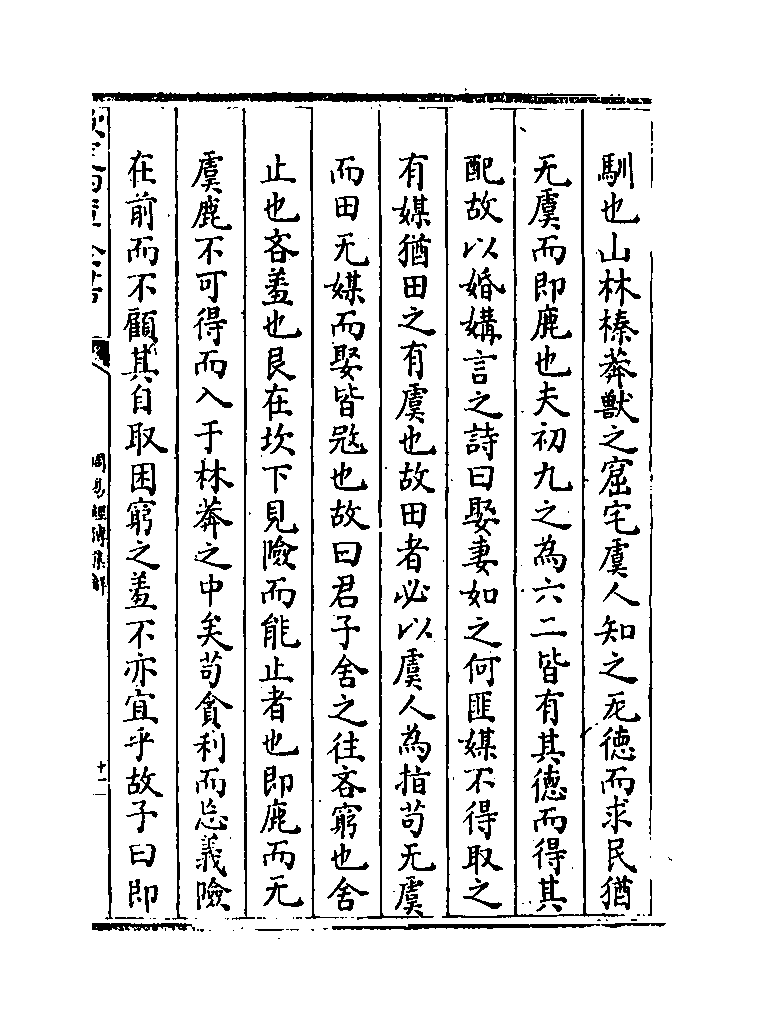 馴也山林榛莽獸之窟宅虞人知之无徳而求民猶
无虞而即鹿也夫初九之為六二皆有其德而得其
配故以婚媾言之詩曰娶妻如之何匪媒不得取之
有媒猶田之有虞也故田者必以虞人為指茍无虞
而田无媒而娶皆愆也故曰君子舍之往吝窮也舍
止也吝羞也艮在坎下見險而能止者也即鹿而无
虞鹿不可得而入于林莽之中矣茍貪利而忘義險
在前而不顧其自取困窮之羞不亦宜乎故子曰即
周易經傳集解
十二